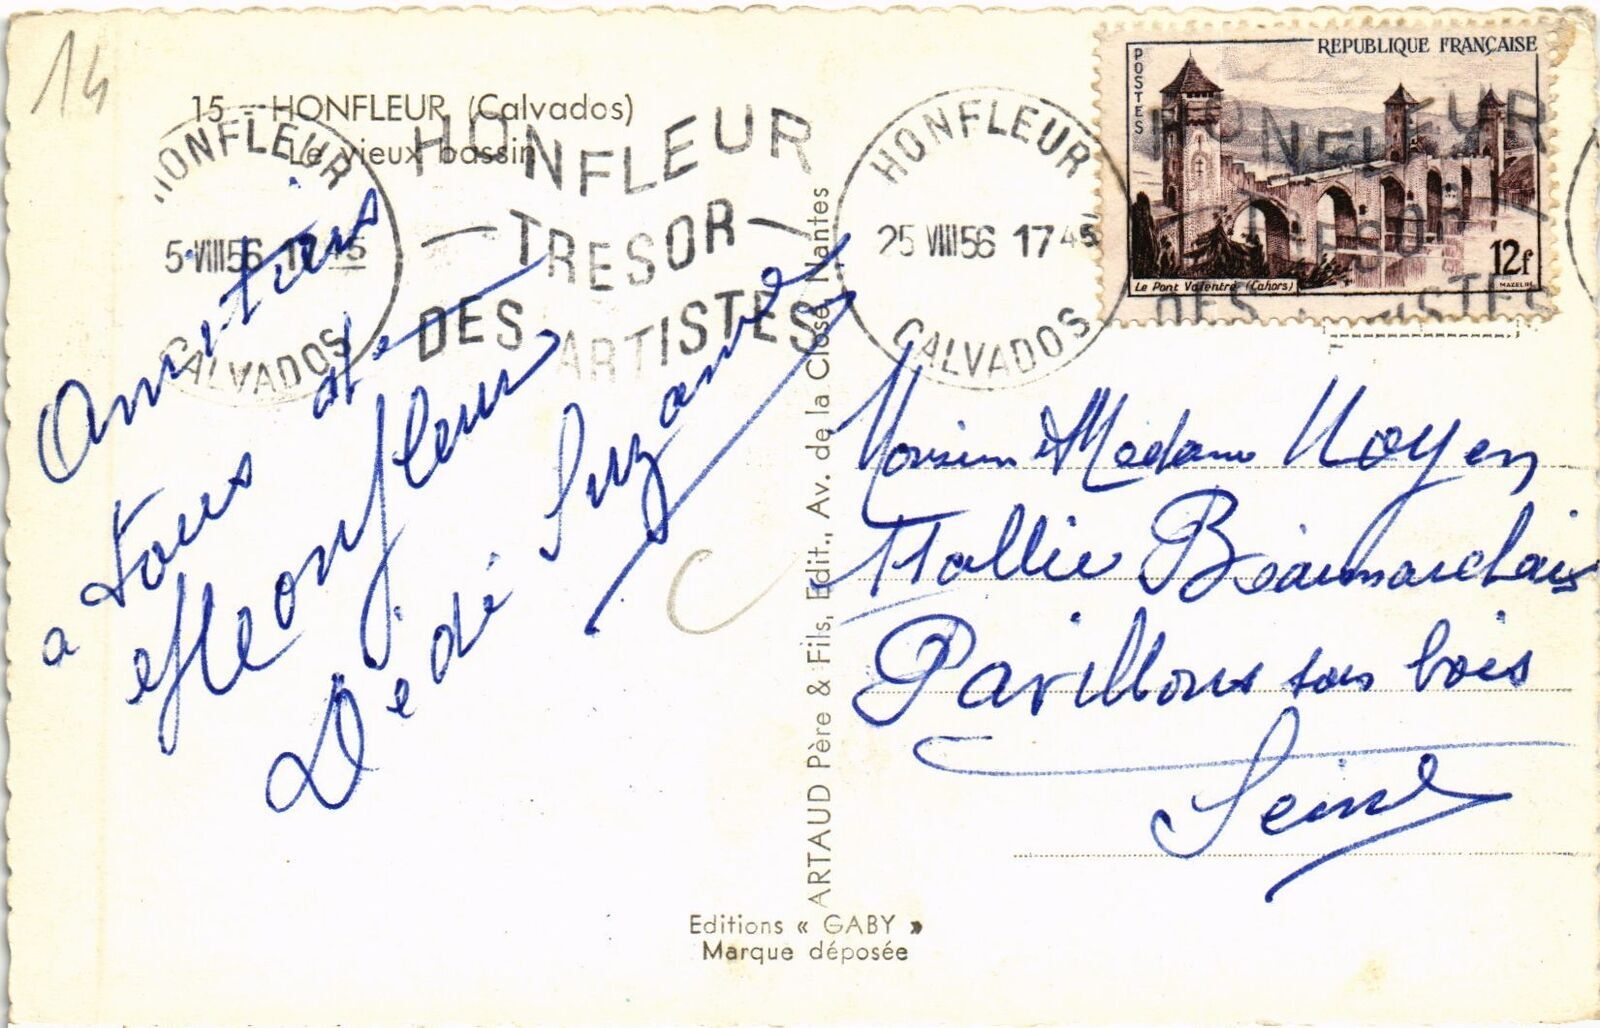 14
15 - HONFLEUR (Calvados)
Le vieux bassin
HONFLEUR
5-VIII56 17 45
CALVADOS
HONFLEUR
TRESOR
DES ARTISTES
HONFLEUR
25 VIII56 17 45
CALVADOS
REPUBLIQUE FRANÇAISE
POSTES
12f
Le Pont Valentré (Cahors)
MAZELIN
HONFLEUR
TRESOR
DES ARTISTES
Amitiés
a tous et
Dédé Suzanne
ARTAUD Père & Fils, Edit., Av. de la Close, Nantes
Monsieur et Madame Noyen
Beaumarchais
Pavillons sous bois
Seine
Editions « GABY »
Marque déposée